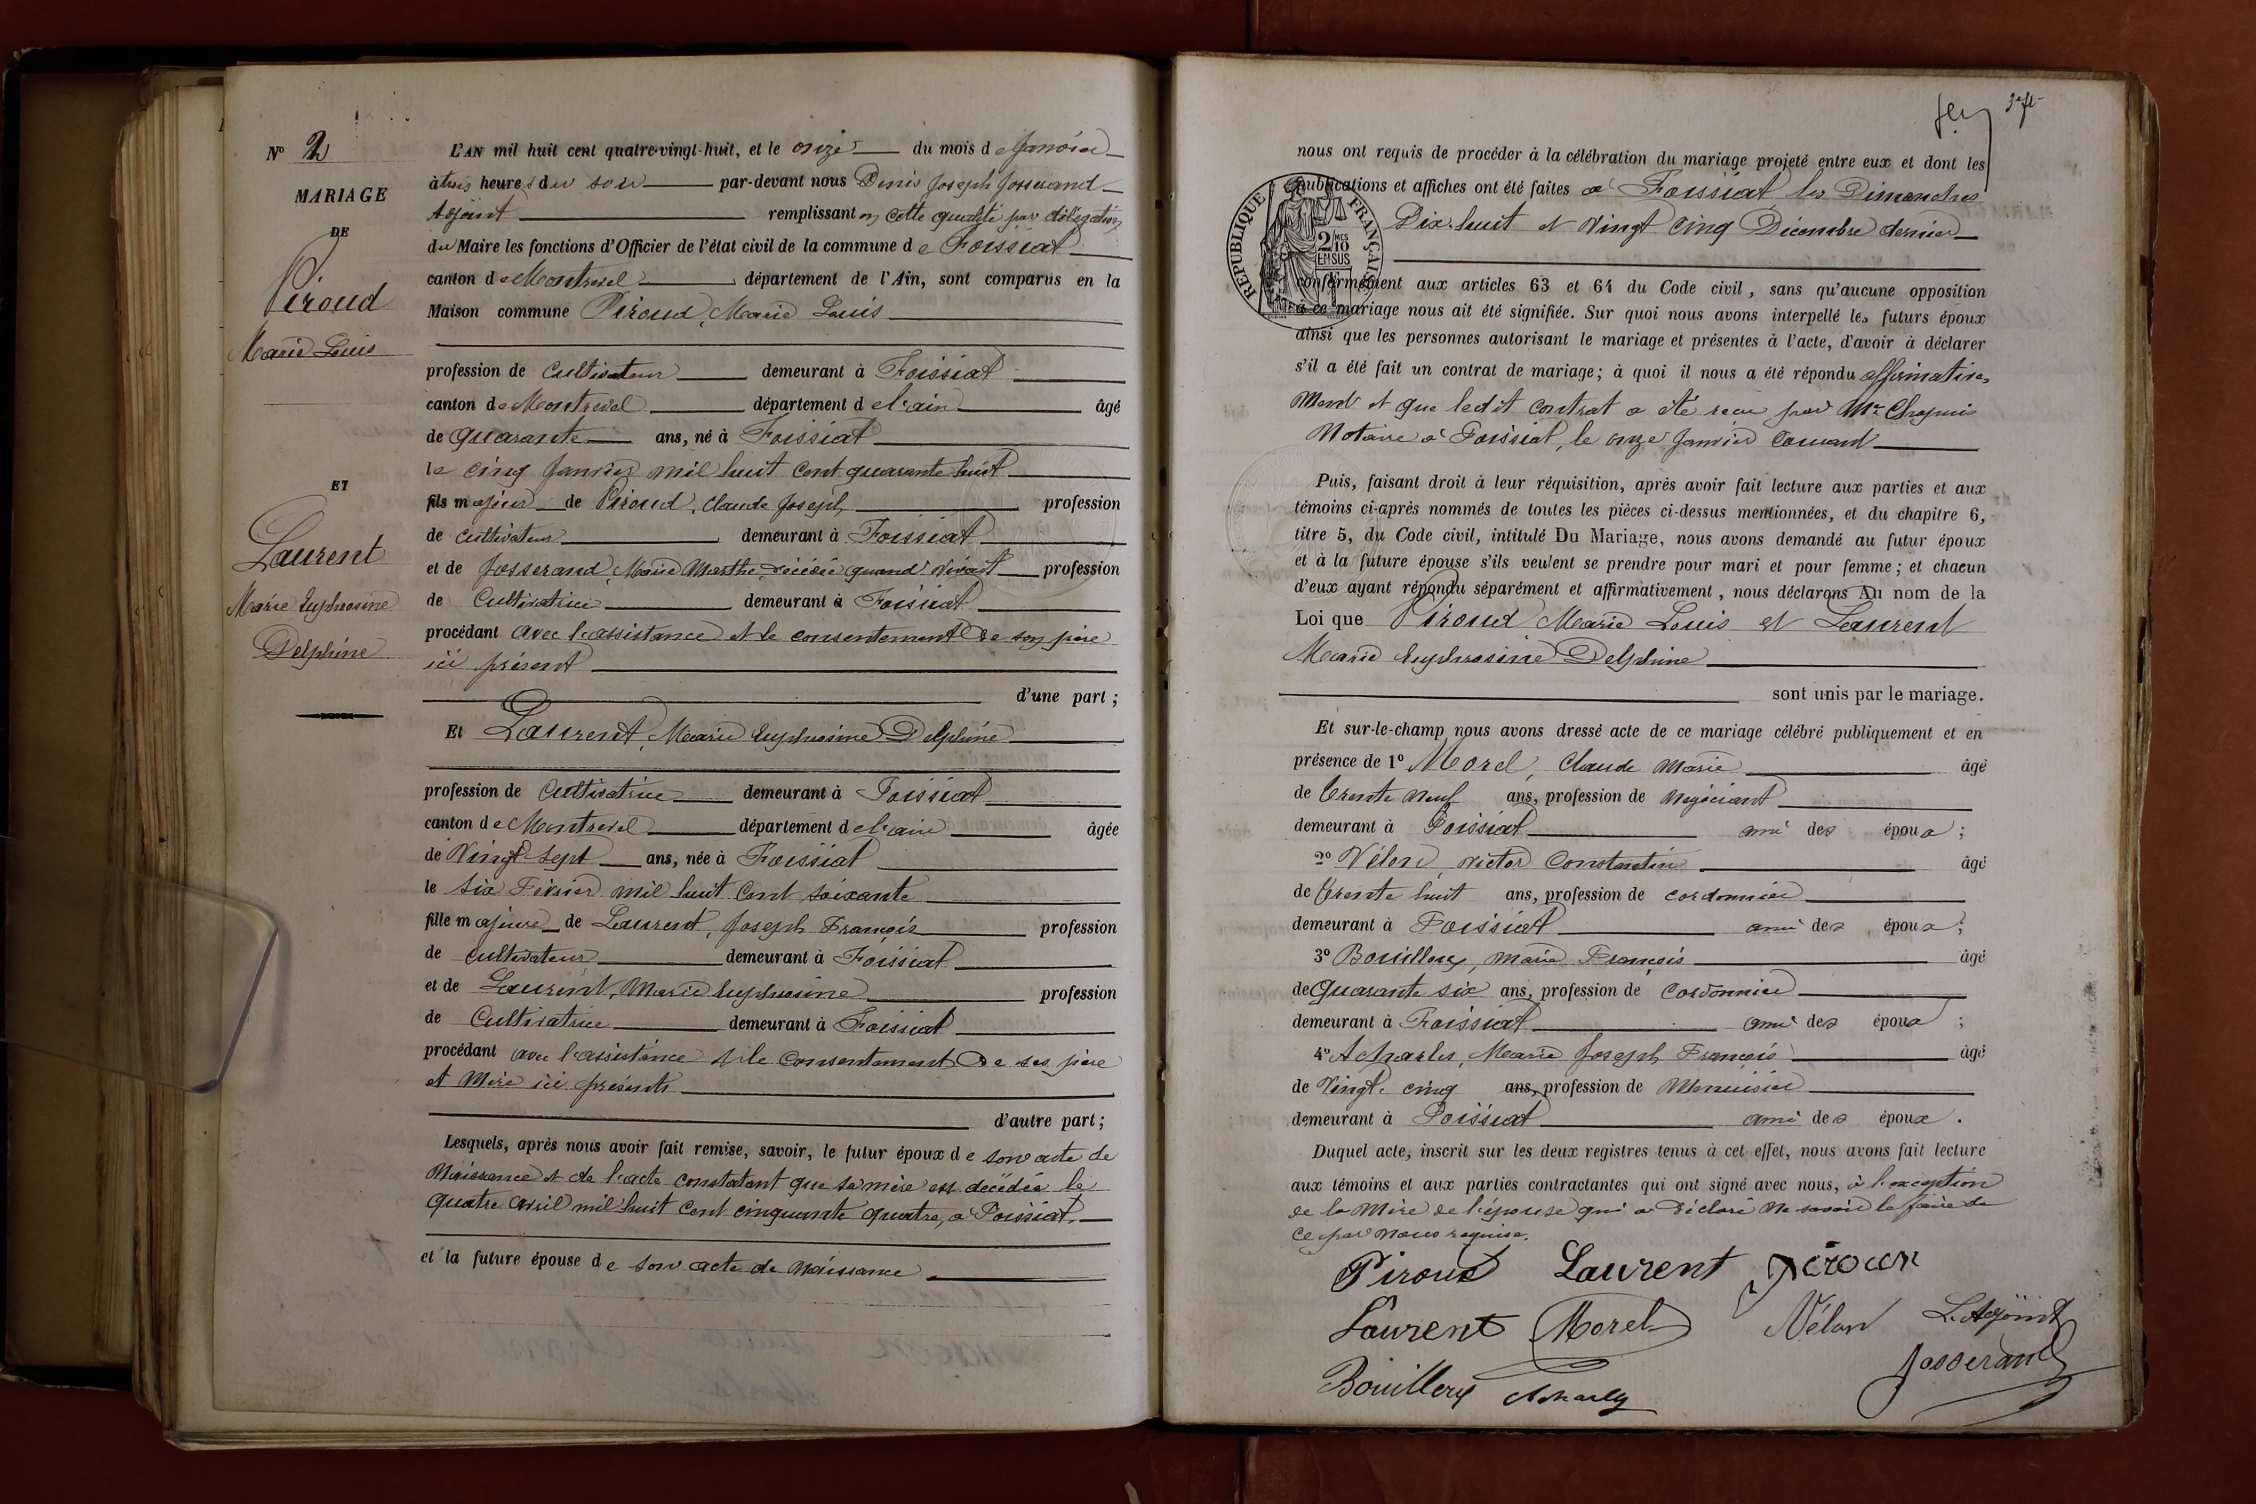 N° 2
MARIAGE
DE
Piroud
Marie Louis
ET
Laurent
Marie Euphrosine
Delphine
L'AN mil huit cent quatre-vingt-huit, et le onze du mois de Janvier
à trois heures du soir par-devant nous Denis Joseph Josserand
Adjoint remplissant en cette qualité par délégation
du Maire les fonctions d'Officier de l'état civil de la commune de Foissiat
canton de Montrevel département de l'Ain, sont comparus en la
Maison commune Piroud, Marie Louis
profession de Cultivateur demeurant à Foissiat
canton de Montrevel département de l'ain âgé
de quarante ans, né à Foissiat
le cinq Janvier mil huit cent quarante huit
fils majeur de Piroud, Claude Joseph profession
de cultivateur demeurant à Foissiat
et de Josserand, Marie Marthe, décédée quand vivait profession
de Cultivatrice demeurant à Foissiat
procédant avec l'assistance et le consentement de son père
ici présent
d'une part ;
Et Laurent, Marie Euphrosine Delphine
profession de Cultivatrice demeurant à Foissiat
canton de Montrevel département de l'ain âgée
de Vingt sept ans, née à Foissiat
le six Février mil huit cent soixante
fille majeure de Laurent, Joseph François profession
de cultivateur demeurant à Foissiat
et de Laurent, Marie Euphrosine profession
de Cultivatrice demeurant à Foissiat
procédant avec l'assistance et le consentement de ses père
et Mère ici présents
d'autre part ;
Lesquels, après nous avoir fait remise, savoir, le futur époux de son acte de
Naissance et de l'acte constatant que sa mère est décédée le
quatre avril mil huit cent cinquante quatre, à Foissiat.
et la future épouse de son acte de Naissance
nous ont requis de procéder à la célébration du mariage projeté entre eux et dont les
publications et affiches ont été faites à Foissiat les Dimanches
Dix-huit et Vingt cinq Décembre dernier
RÉPUBLIQUE FRANÇAISE
2/10 MES
EN SUS
conformément aux articles 63 et 64 du Code civil, sans qu'aucune opposition
à ce mariage nous ait été signifiée. Sur quoi nous avons interpellé les futurs époux
ainsi que les personnes autorisant le mariage et présentes à l'acte, d'avoir à déclarer
s'il a été fait un contrat de mariage ; à quoi il nous a été répondu affirmative
ment et que ledit contrat a été reçu par Mr Chapuis
Notaire à Foissiat, le onze Janvier courant
Puis, faisant droit à leur réquisition, après avoir fait lecture aux parties et aux
témoins ci-après nommés de toutes les pièces ci-dessus mentionnées, et du chapitre 6,
titre 5, du Code civil, intitulé Du Mariage, nous avons demandé au futur époux
et à la future épouse s'ils veulent se prendre pour mari et pour femme ; et chacun
d'eux ayant répondu séparément et affirmativement, nous déclarons Au nom de la
Loi que Piroud Marie Louis et Laurent
Marie Euphrosine Delphine
sont unis par le mariage.
Et sur-le-champ nous avons dressé acte de ce mariage célébré publiquement et en
présence de 1° Morel, Claude Marie âgé
de Trente Neuf ans, profession de Négociant
demeurant à Foissiat ami des époux ;
2° Vélon, Victor Constantin âgé
de Trente huit ans, profession de cordonnier
demeurant à Foissiat ami des époux ;
3° Bouilloux, Marie François âgé
de Quarante six ans, profession de Cordonnier
demeurant à Foissiat ami des époux ;
4° Marie Joseph François âgé
de Vingt cinq ans, profession de Menuisier
demeurant à Foissiat ami des époux .
Duquel acte, inscrit sur les deux registres tenus à cet effet, nous avons fait lecture
aux témoins et aux parties contractantes qui ont signé avec nous, à l'exception
de la Mère de l'épouse qui a déclaré ne savoir le faire de
ce par nous requise.
Piroud Laurent Piroud
Laurent Morel Vélon L'Adjoint
Josserand
Bouilloux